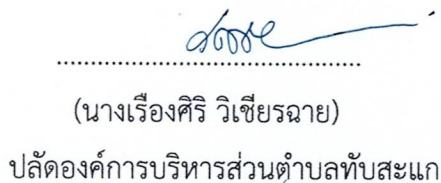 (นางเรืองศิริ วิเชียรฉาย)
ปลัดองค์การบริหารส่วนตำบลทับสะแก